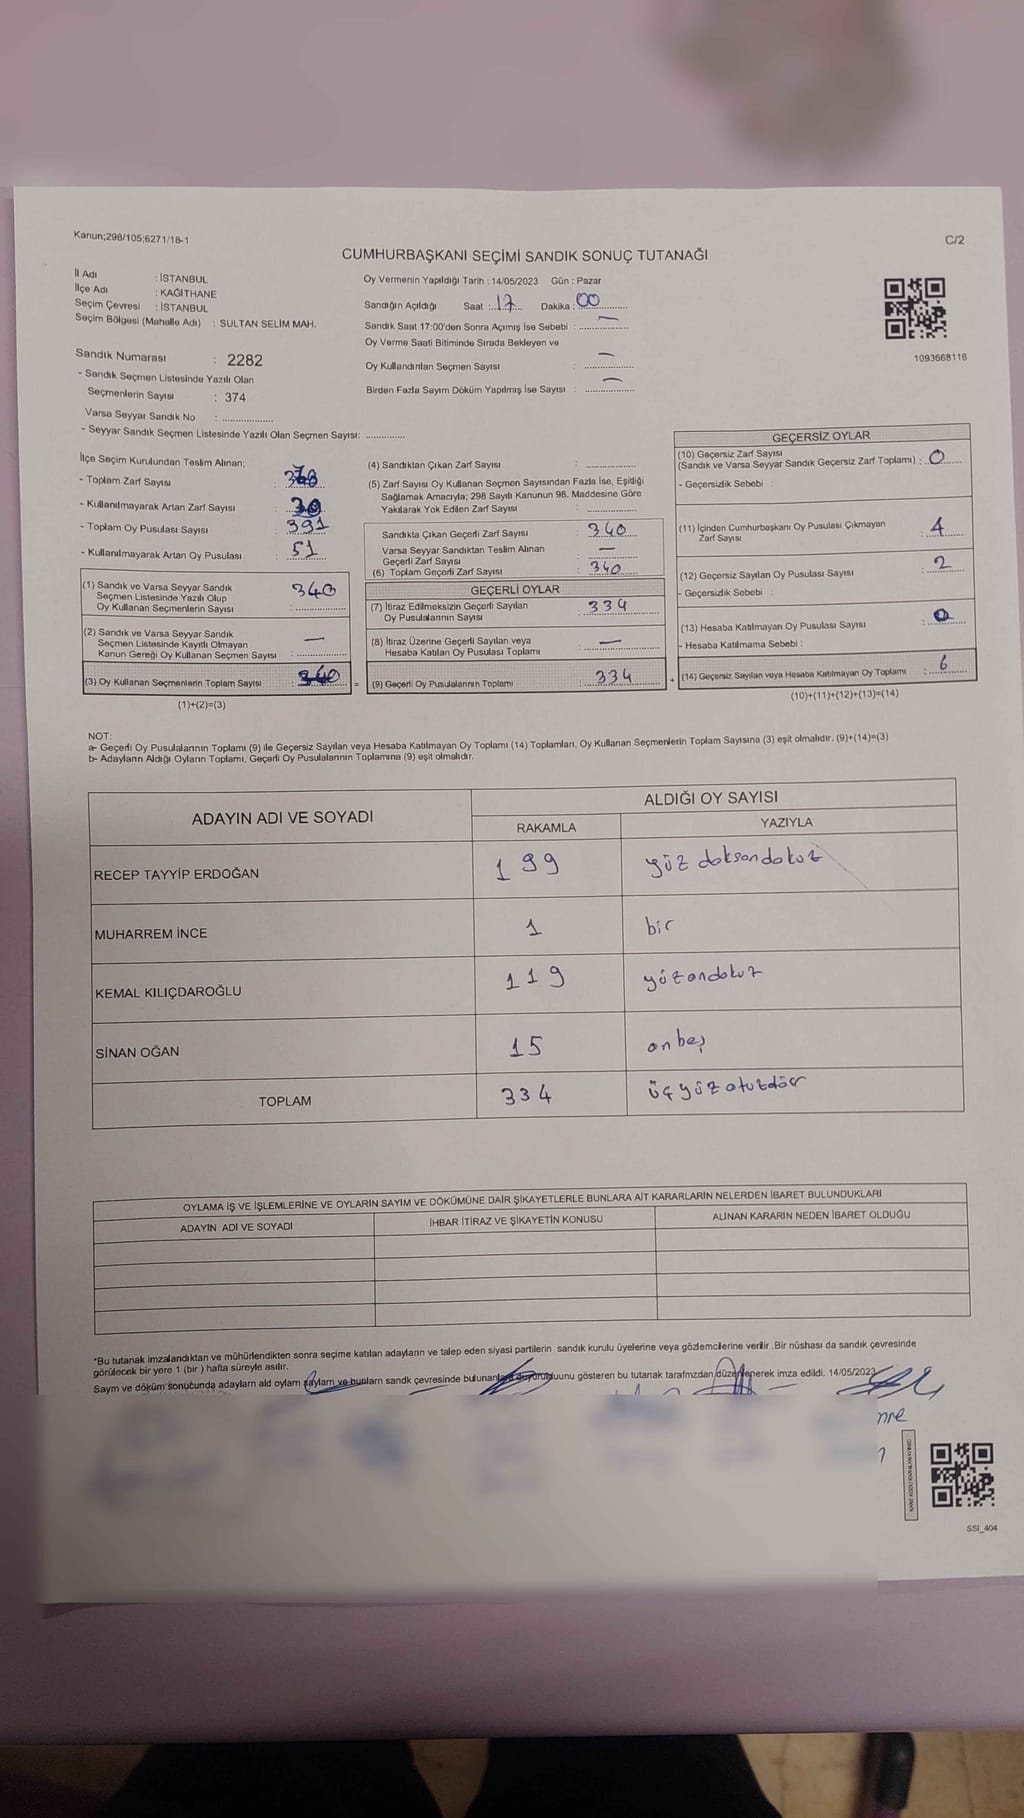 Kanun;298/105;6271/18-1
C/2
CUMHURBAŞKANI SEÇİMİ SANDIK SONUÇ TUTANAĞI
İl Adı : İSTANBUL
İlçe Adı : KAĞITHANE
Seçim Çevresi : İSTANBUL
Seçim Bölgesi (Mahalle Adı) : SULTAN SELİM MAH.
Sandık Numarası : 2282
- Sandık Seçmen Listesinde Yazılı Olan
Seçmenlerin Sayısı : 374
Varsa Seyyar Sandık No : ..................
- Seyyar Sandık Seçmen Listesinde Yazılı Olan Seçmen Sayısı: ..............
Oy Vermenin Yapıldığı Tarih : 14/05/2023 Gün : Pazar
Sandığın Açıldığı Saat : 17 Dakika : 00
Sandık Saat 17:00'den Sonra Açımış İse Sebebi : —
Oy Verme Saati Bitiminde Sırada Bekleyen ve
Oy Kullandırılan Seçmen Sayısı : —
Birden Fazla Sayım Döküm Yapılmış İse Sayısı : —
1093668116
İlçe Seçim Kurulundan Teslim Alınan;
- Toplam Zarf Sayısı :
- Kullanılmayarak Artan Zarf Sayısı : 30
- Toplam Oy Pusulası Sayısı : 391
- Kullanılmayarak Artan Oy Pusulası : 51
(1) Sandık ve Varsa Seyyar Sandık
Seçmen Listesinde Yazılı Olup
Oy Kullanan Seçmenlerin Sayısı : 340
(2) Sandık ve Varsa Seyyar Sandık
Seçmen Listesinde Kayıtlı Olmayan
Kanun Gereği Oy Kullanan Seçmen Sayısı : —
(3) Oy Kullanan Seçmenlerin Toplam Sayısı : 340 =
(1)+(2)=(3)
(4) Sandıktan Çıkan Zarf Sayısı : ..............
(5) Zarf Sayısı Oy Kullanan Seçmen Sayısından Fazla İse, Eşitliği
Sağlamak Amacıyla; 298 Sayılı Kanunun 98. Maddesine Göre
Yakılarak Yok Edilen Zarf Sayısı : ..............
Sandıkta Çıkan Geçerli Zarf Sayısı : 340
Varsa Seyyar Sandıktan Teslim Alınan
Geçerli Zarf Sayısı : —
(6) Toplam Geçerli Zarf Sayısı : 340
GEÇERLİ OYLAR
(7) İtiraz Edilmeksizin Geçerli Sayılan
Oy Pusulalarının Sayısı : 334
(8) İtiraz Üzerine Geçerli Sayılan veya
Hesaba Katılan Oy Pusulası Toplamı : —
(9) Geçerli Oy Pusulalarının Toplamı : 334 +
GEÇERSİZ OYLAR
(10) Geçersiz Zarf Sayısı
(Sandık ve Varsa Seyyar Sandık Geçersiz Zarf Toplamı) : 0
- Geçersizlik Sebebi :
(11) İçinden Cumhurbaşkanı Oy Pusulası Çıkmayan
Zarf Sayısı : 4
(12) Geçersiz Sayılan Oy Pusulası Sayısı : 2
- Geçersizlik Sebebi :
(13) Hesaba Katılmayan Oy Pusulası Sayısı : 0
- Hesaba Katılmama Sebebi :
(14) Geçersiz Sayılan veya Hesaba Katılmayan Oy Toplamı : 6
(10)+(11)+(12)+(13)=(14)
NOT:
a- Geçerli Oy Pusulalarının Toplamı (9) ile Geçersiz Sayılan veya Hesaba Katılmayan Oy Toplamı (14) Toplamları, Oy Kullanan Seçmenlerin Toplam Sayısına (3) eşit olmalıdır. (9)+(14)=(3)
b- Adayların Aldığı Oyların Toplamı, Geçerli Oy Pusulalarının Toplamına (9) eşit olmalıdır.
ADAYIN ADI VE SOYADI ALDIĞI OY SAYISI
RAKAMLA YAZIYLA
RECEP TAYYİP ERDOĞAN 199 yüz doksandokuz
MUHARREM İNCE 1 bir
KEMAL KILIÇDAROĞLU 119 yüzondokuz
SİNAN OĞAN 15 onbeş
TOPLAM 334 üçyüzotuzdör
OYLAMA İŞ VE İŞLEMLERİNE VE OYLARIN SAYIM VE DÖKÜMÜNE DAİR ŞİKAYETLERLE BUNLARA AİT KARARLARIN NELERDEN İBARET BULUNDUKLARI
ADAYIN ADI VE SOYADI İHBAR İTİRAZ VE ŞİKAYETİN KONUSU ALINAN KARARIN NEDEN İBARET OLDUĞU
*Bu tutanak imzalandıktan ve mühürlendikten sonra seçime katılan adayların ve talep eden siyasi partilerin sandık kurulu üyelerine veya gözlemcilerine verilir .Bir nüshası da sandık çevresinde
görülecek bir yere 1 (bir ) hafta süreyle asılır.
Sayım ve döküm sonucunda adayların ald oyların sayıları ve bunların sandk çevresinde bulunanlara duyurulduunu gösteren bu tutanak tarafmzdan düzenlenerek imza edildi. 14/05/2023
SSI_404